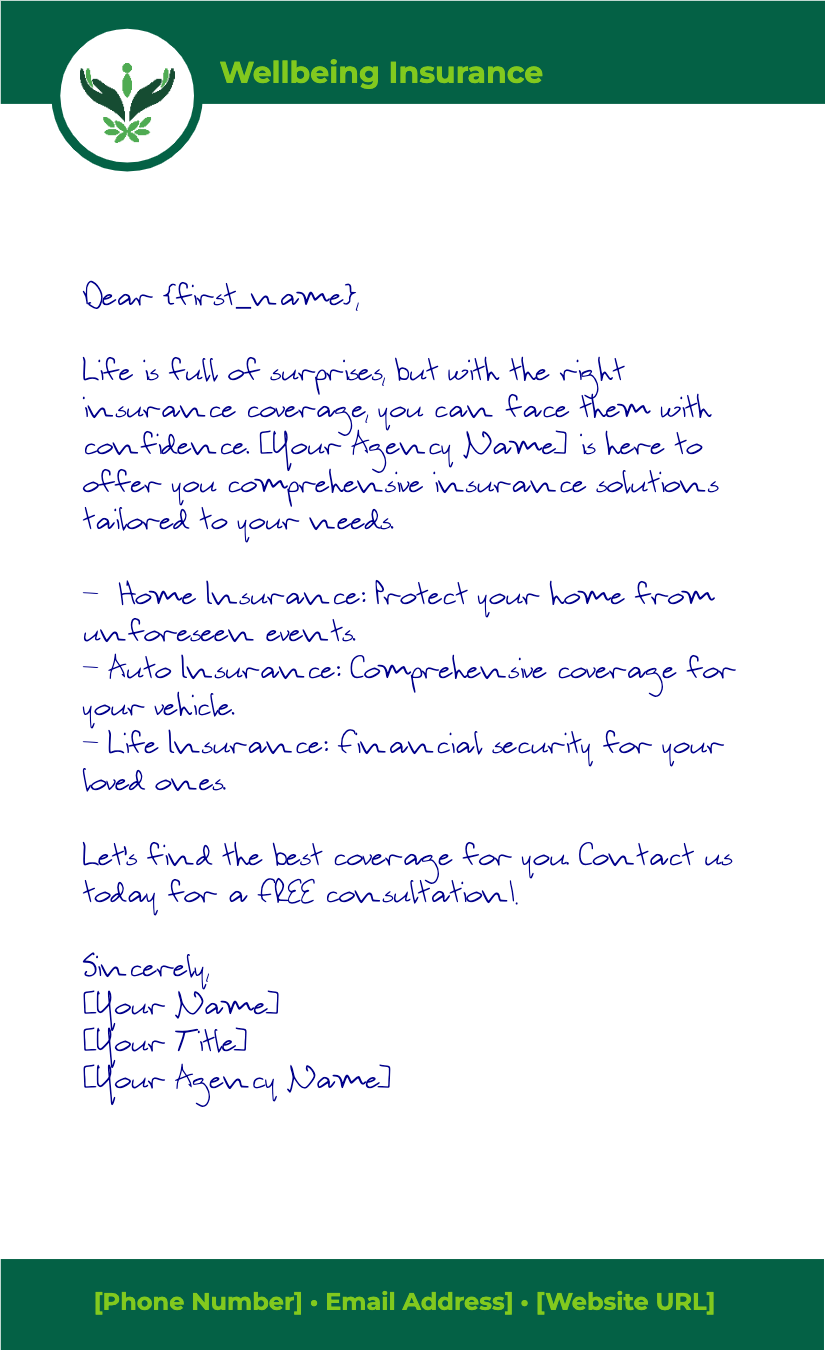 Wellbeing Insurance
Dear {first_name},
Life is full of surprises, but with the right
insurance coverage, you can face them with
confidence. [Your Agency Name] is here to
offer you comprehensive insurance solutions
tailored to your needs.
- Home Insurance: Protect your home from
unforeseen events.
- Auto Insurance: Comprehensive coverage for
your vehicle.
- Life Insurance: Financial security for your
loved ones.
Let's find the best coverage for you. Contact us
today for a FREE consultation!
Sincerely,
[Your Name]
[Your Title]
[Your Agency Name]
[Phone Number] • Email Address] • [Website URL]